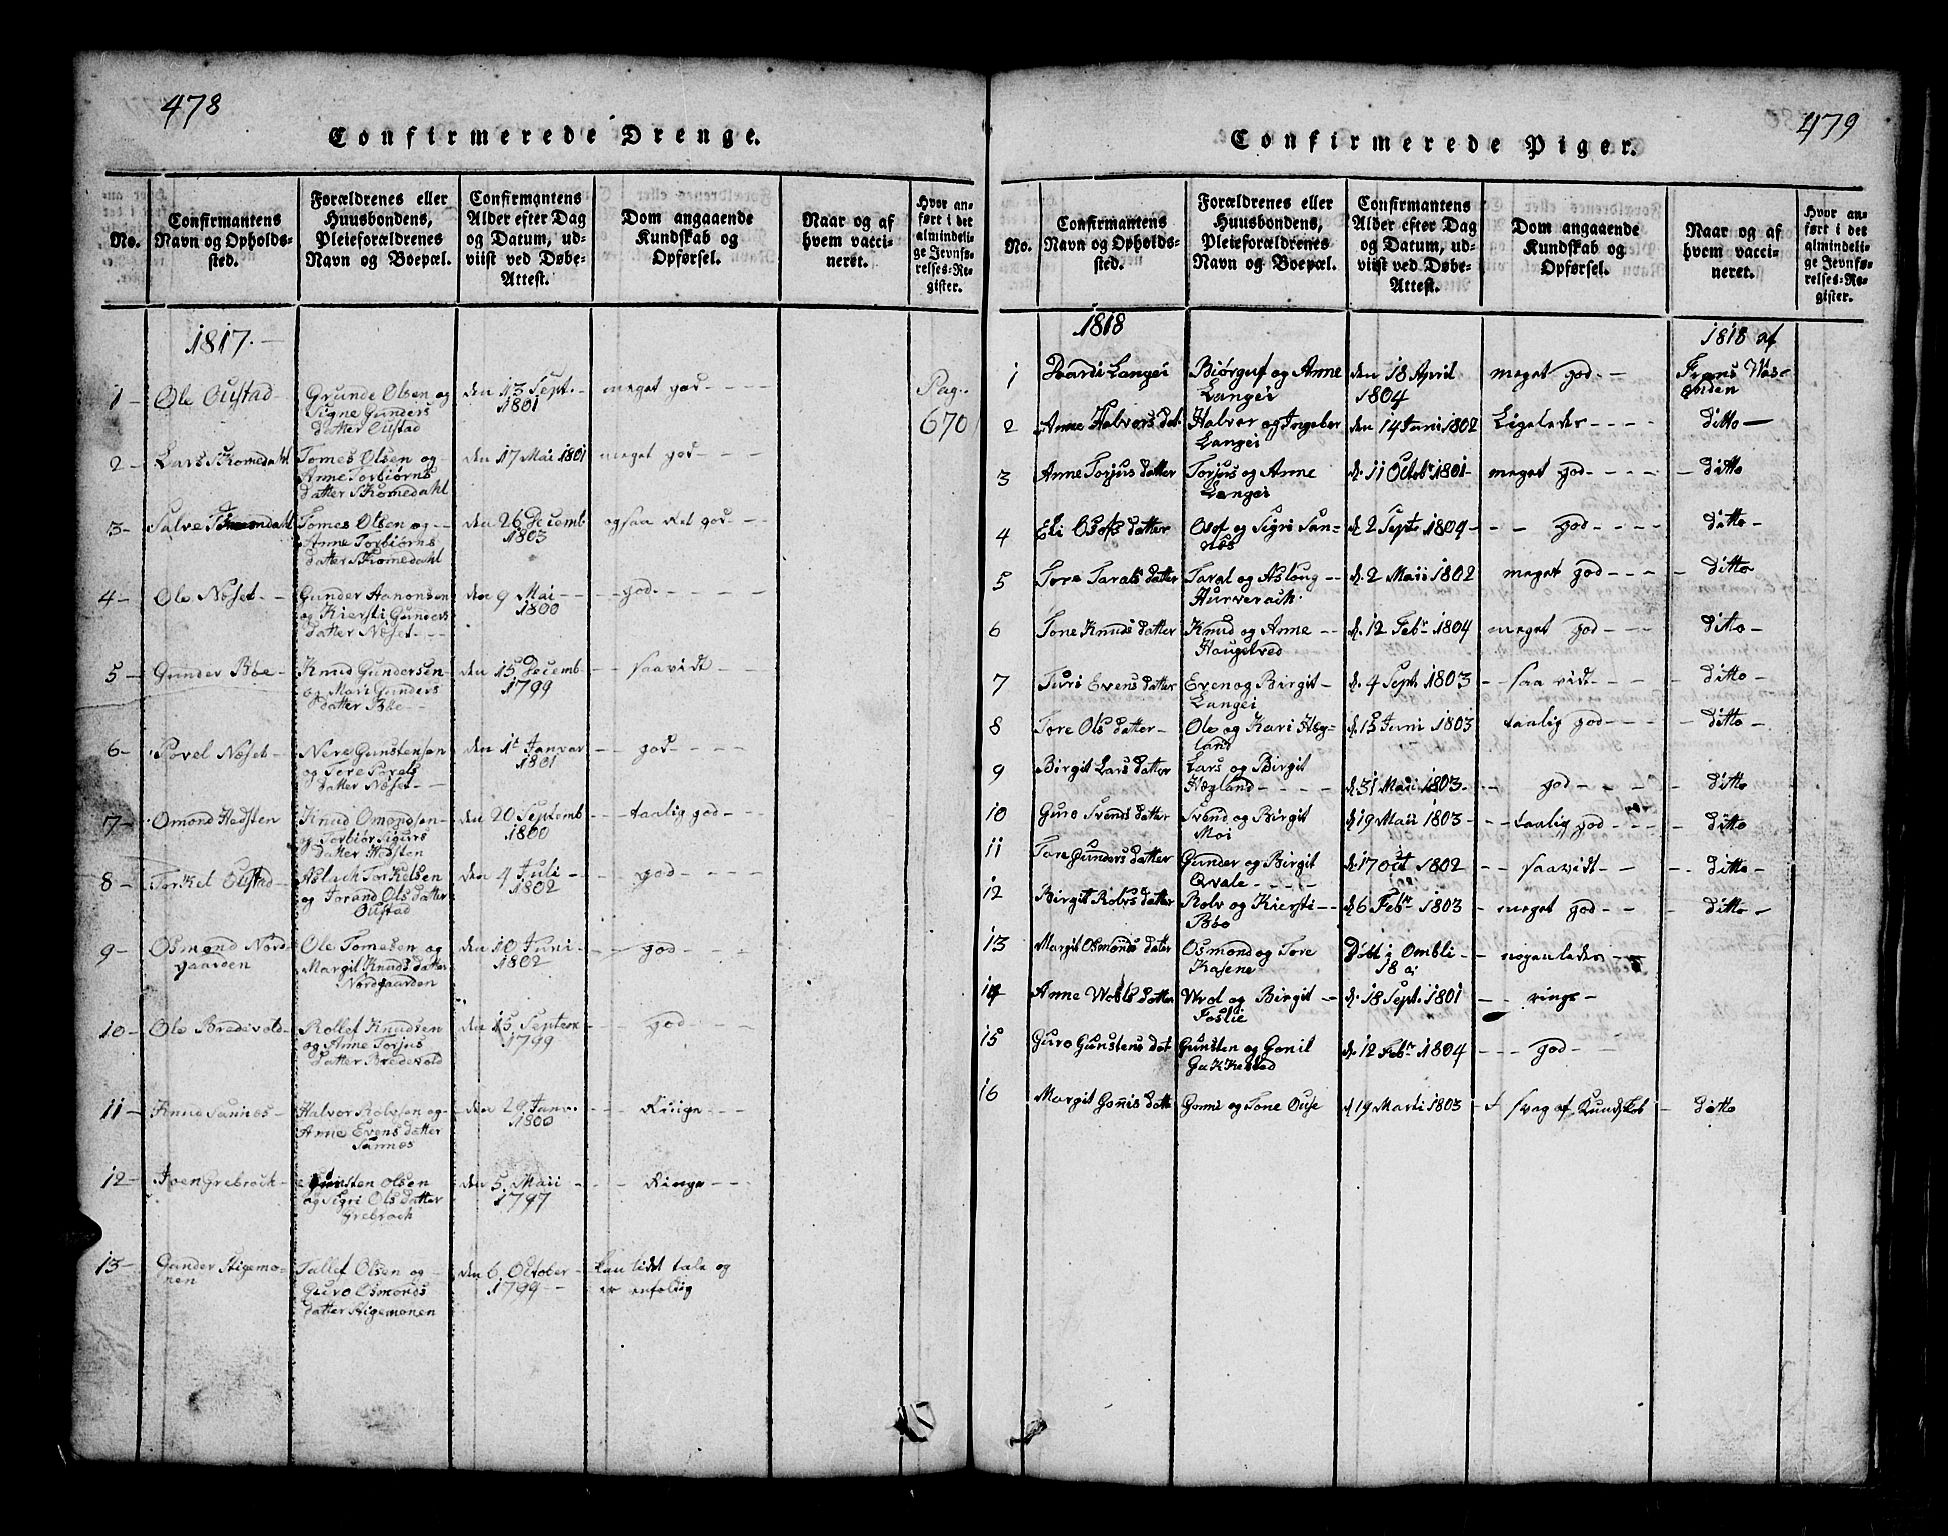 478
Confirmerede Drenge.
No.
Confirmantens
Navn og Opholds-
sted.
Forældrenes eller
Huusbondens,
Pleieforældrenes
Navn og Boepæl.
Confirmantens
Alder efter Dag
og Datum, ud-
viist ved Døbe-
Attest.
Dom angaaende
Kundskab og
Opførsel.
Naar og af
hvem vacci-
neret.
Hvor an-
ført i det
almindeli-
ge Jevnfø-
relses-Re-
gister.
1817.
1 Ole Oustad Grunde Olsen og den 13 Sept. meget god Pag.
Signe Gunders 1801 670
datter Oustad
2 Lars Skomedahl Tomes Olsen og den 17 Mai 1801 meget god
Anne Torbiørns
datter Skomedahl
3 Salve Tomes Olsen og den 26 Decemb ogsaa ret god
Anne Torbiørns 1803
datter Skomedahl
4 Ole Næset Gunder Aanonsen den 9 Mai god
og Kiersti Gunders 1800
datter Næset
5 Gunder Bøe Knud Gundersen den 15 Decemb saavidt
og Mari Gunders 1799
datter Bøe
6 Povel Næset Nere Gunstensen den 1t Januar god
og Tore Povels 1801
datter Næset
7 Omond Hodsten Knud Omondsen den 20 Septemb taalig god
og Torbiør Sigurs 1800
datter Hodsten
8 Torkel Oustad Aslach Torkelsen den 4 Juli god
og Jorand Ols datter 1802
Oustad
9 Osmond Nord Ole Tomesen og den 10 Juni god
gaarden Margit Knuds datter 1802
Nordgaarden
10 Ole Bredevold Rollef Knudsen den 15 Septem god
og Anne Torjus 1799
datter Bredevold
11 Knud Sannes Halvor Rolvsen og den 29 Janv. Ringe
Anne Evens datter 1800
Sannes
12 Joen Grebrock Gunsten Olsen den 5 Maii Ringe
og Sigri Ols datter 1797
Grebrock
13 Gunder Stigemo- Tallef Olsen og den 6 October kan lidt tale og
nen Guro Osmonds 1799 er enfoldig
datter Stigemonen
479
Confirmerede Piger.
No.
Confirmantens
Navn og Opholds-
sted.
Forældrenes eller
Huusbondens,
Pleieforældrenes
Navn og Boepæl.
Confirmantens
Alder efter Dag
og Datum, ud-
viist ved Døbe-
Attest.
Dom angaaende
Kundskab og
Opførsel.
Naar og af
hvem vacci-
neret.
Hvor an-
ført i det
almindeli-
ge Jevnfø-
relses-Re-
gister.
1818 1818 af
1 Langei Biørguf og Anne den 18 April meget god Frans Vas-
Langei 1804 enden
2 Anne Halvors dat. Halvor og Ingebor den 14 Juni 1802 Ligeledes ditto
Langei
3 Anne Torjus datter Torjus og Anne d. 11 Octbr 1801 meget god ditto
Langei
4 Eli Osofs datter Osof og Sigri San- d. 2 Septr 1804 god ditto
nes
5 Tore Tarals datter Taral og Asloug d. 2 Maii 1802 meget god ditto
Hurverack
6 Tone Knuds datter Knud og Anne d. 12 Febr 1804 meget god ditto
Haugetved
7 Turi Evens datter Even og Birgit d. 4 Sept 1803 saa vidt ditto
Langei
8 Tore Ols datter Ole og Kari Hæg- d. 15 Juni 1803 taalig god ditto
land
9 Birgit Lars datter Lars og Birgit
Hægland d. 31 Maii 1803 god ditto
10 Guro Svends datter Svend og Birgit d. 19 Maii 1803 taalig god ditto
Moi
11 Tore Gunders datter Gunder og Birgit d. 17 Oct 1802 saavidt ditto
Qvale
12 Birgit Rolvs datter Rolv og Kiersti d. 6 Febr 1803 meget god ditto
Bøe
13 Margit Osmonds datter Osmond og Tore Døbt i Ombli noganledes
Kasene
14 Anne Wols datter Wol og Birgit d. 18 Sept. 1801 ringe
Foslie
15 Guro Gunstens dat Gunsten og Gonil d. 12 Febr 1804 god
Gakkestad
16 Margit Gonis datter Gonni og Tone Ouse d. 19 Marti 1803 svag af Kundskab ditto